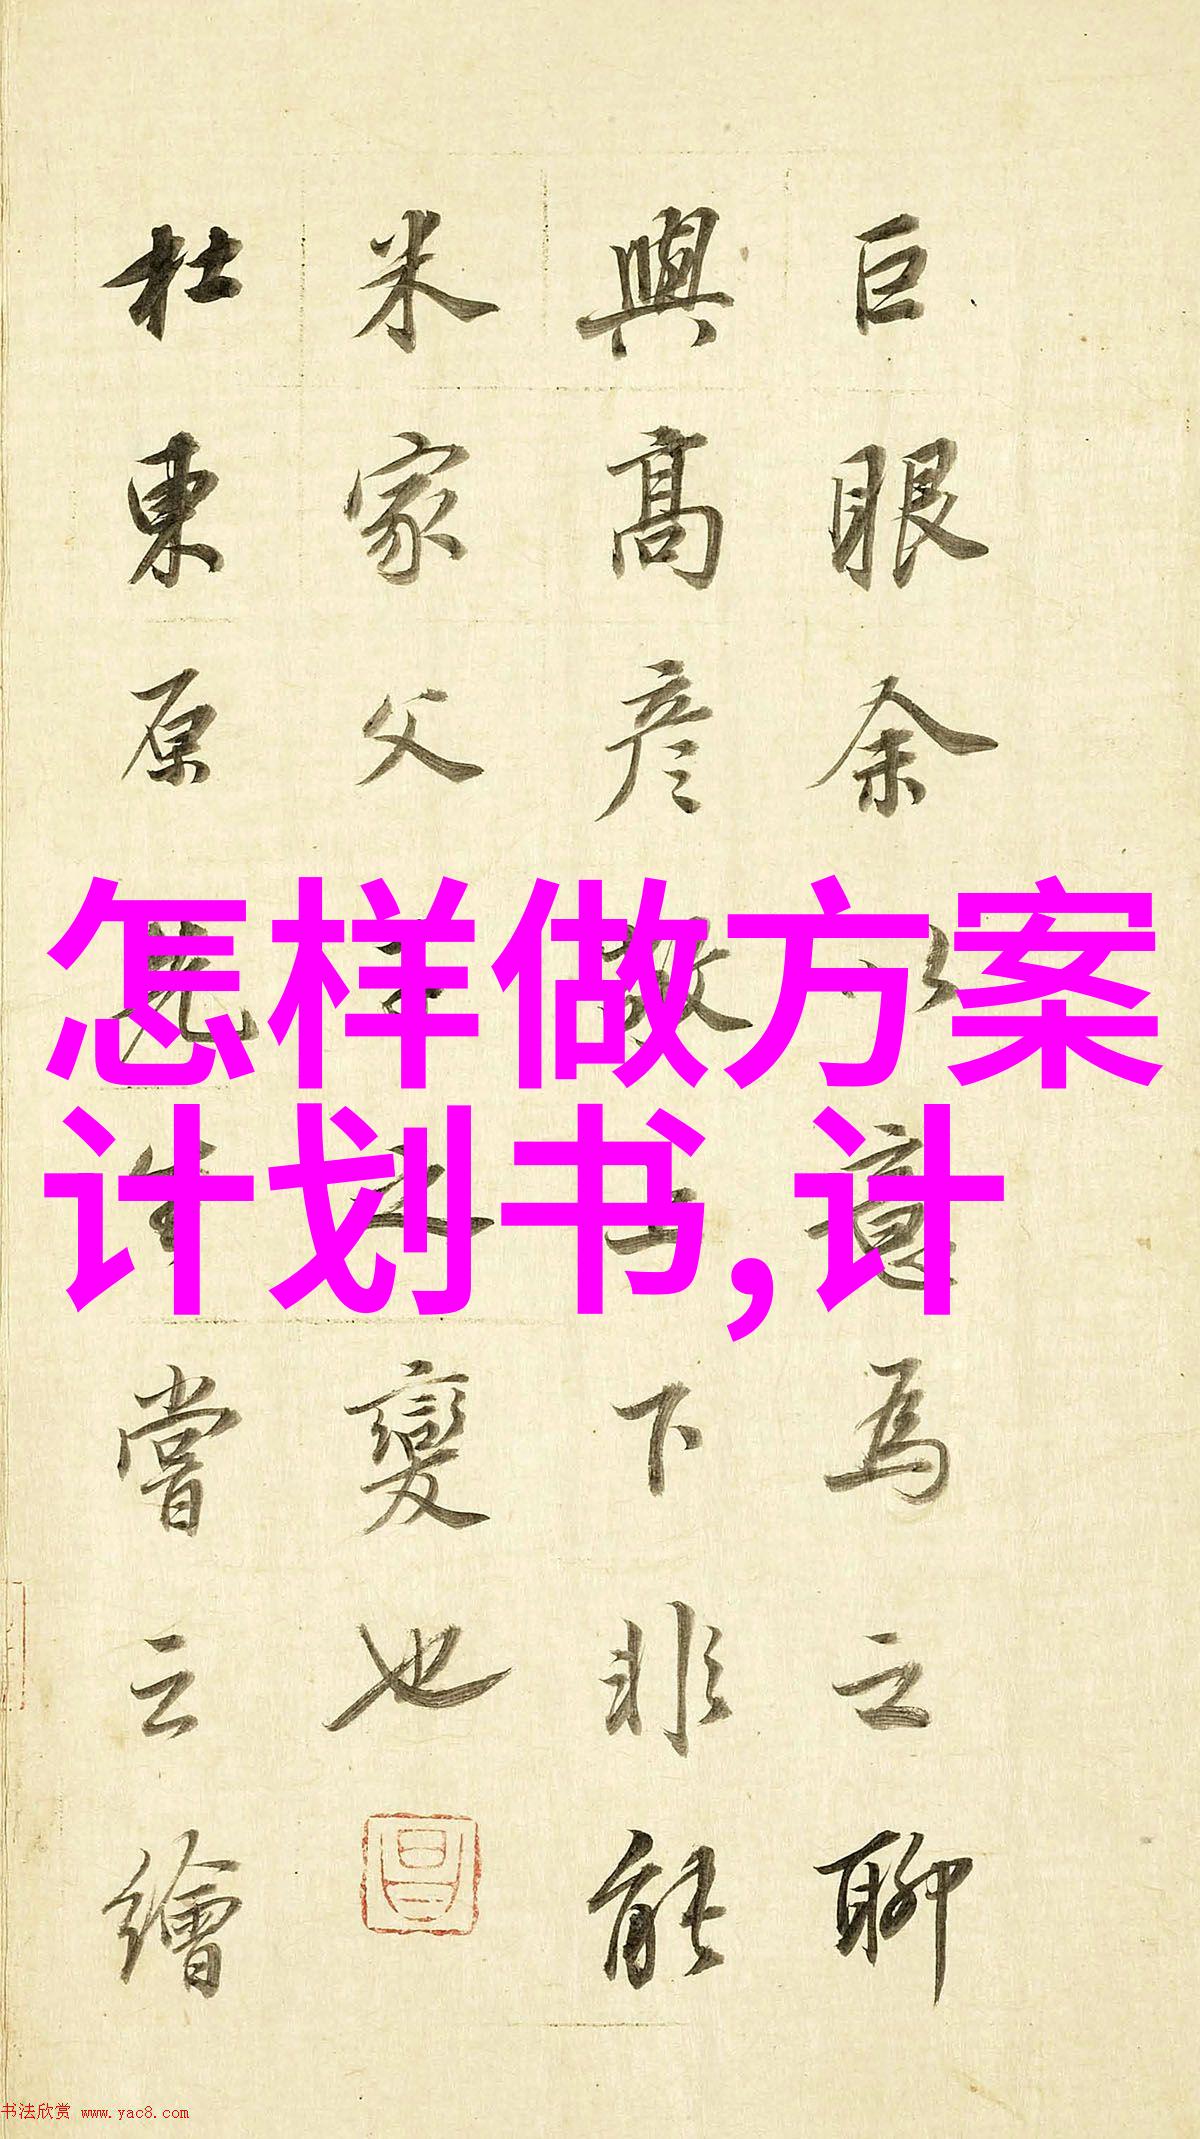 怎样做方案
计划书,计
巨眼余以意為之聊
與高彦敬上下非能
米家父子之變也
杜東原先生嘗云繪
昌
书法欣赏 www.yac8.com